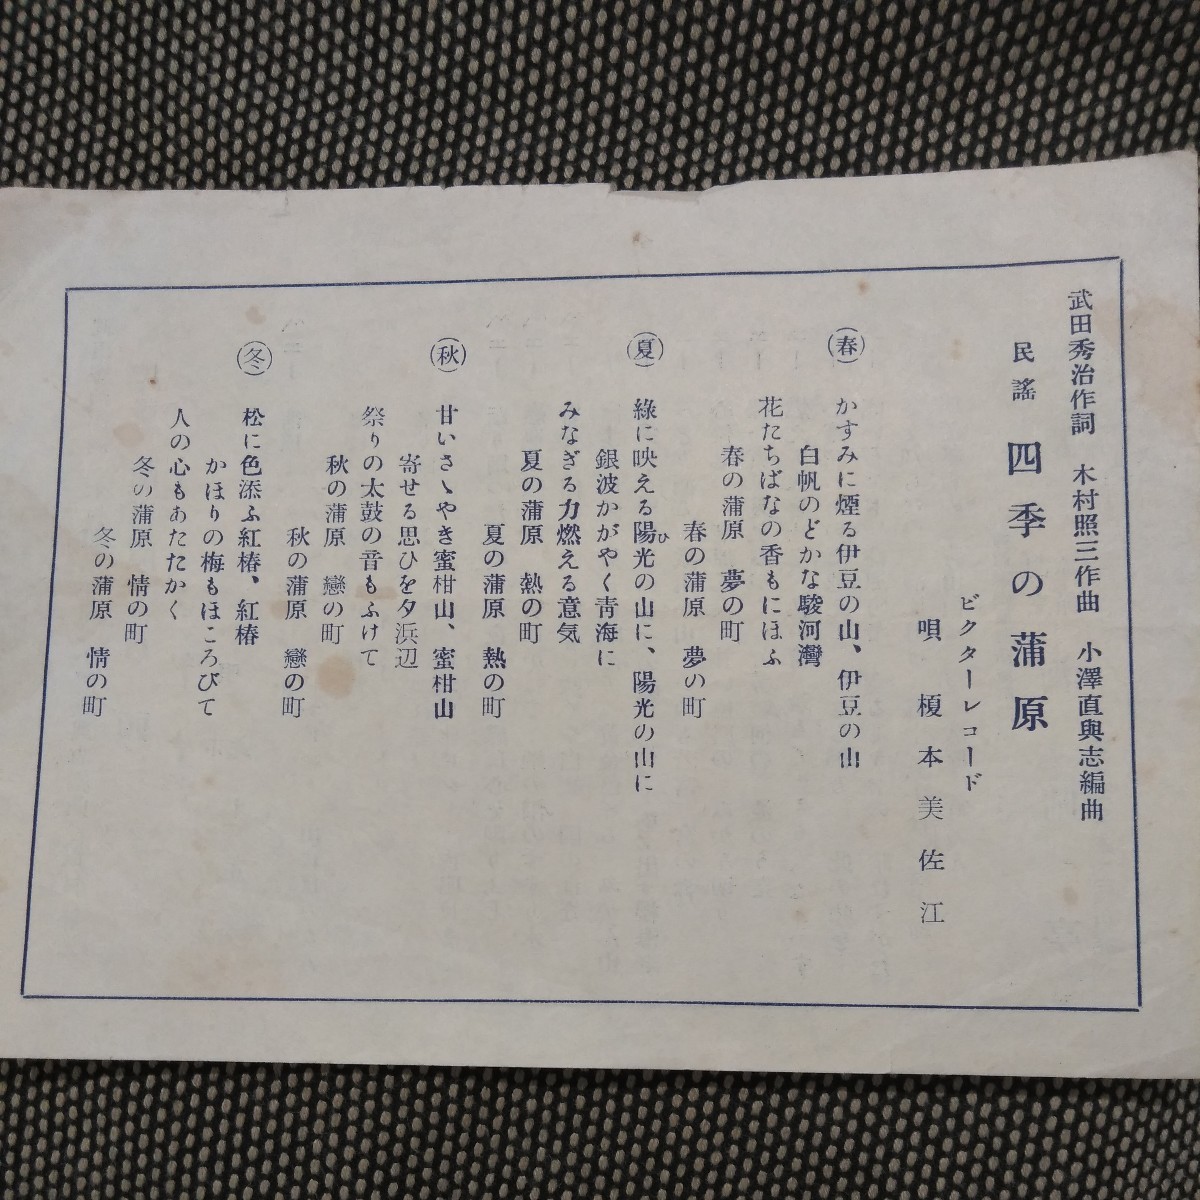 武田秀治作詞　木村照三作曲　小澤直與志編曲
民謠　四季の蒲原
ビクターレコード
唄　榎本美佐江
（春）　かすみに煙る伊豆の山、伊豆の山
白帆のどかな駿河灣
花たちばなの香もにほふ
春の蒲原　夢の町
春の蒲原　夢の町
（夏）　綠に映える陽光の山に、陽光の山に
ひ
銀波かがやく青海に
みなぎる力燃える意気
夏の蒲原　熱の町
夏の蒲原　熱の町
（秋）　甘いさゝやき蜜柑山、蜜柑山
寄せる思ひを夕浜辺
祭りの太鼓の音もふけて
秋の蒲原　戀の町
秋の蒲原　戀の町
（冬）　松に色添ふ紅椿、紅椿
かほりの梅もほころびて
人の心もあたたかく
冬の蒲原　情の町
冬の蒲原　情の町